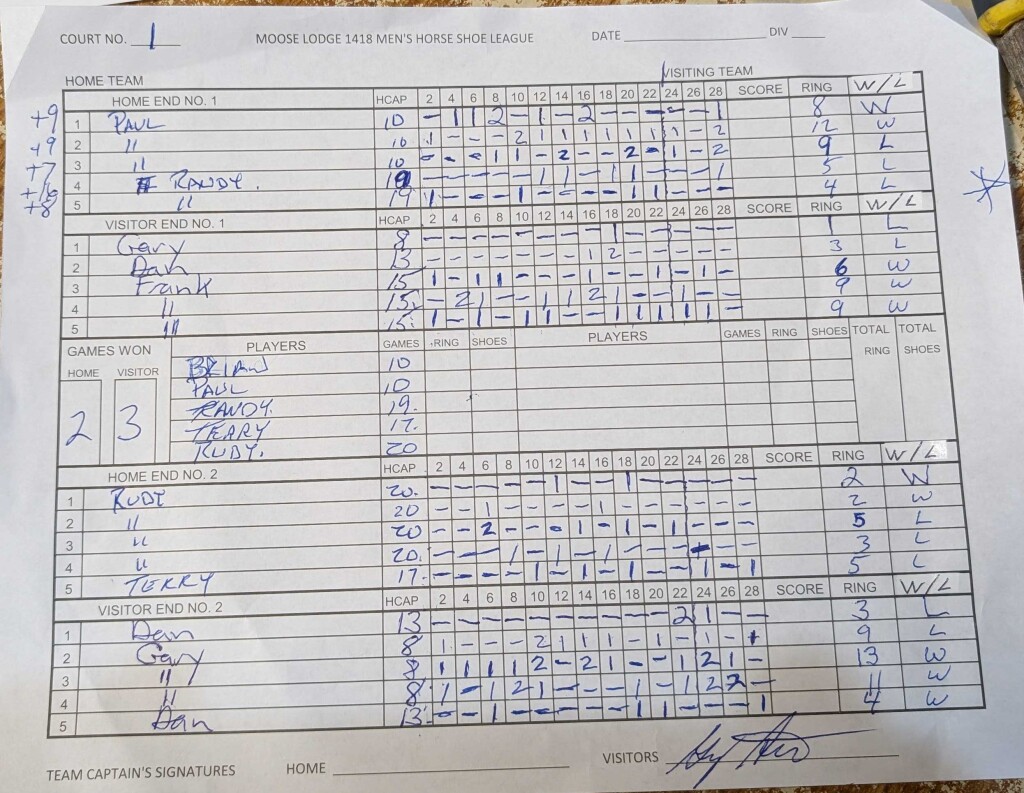 COURT NO. 1 MOOSE LODGE 1418 MEN'S HORSE SHOE LEAGUE DATE ____ DIV ____
HOME TEAM VISITING TEAM
HOME END NO. 1 HCAP 2 4 6 8 10 12 14 16 18 20 22 24 26 28 SCORE RING W/L
+9 1 PAUL 10 - 1 1 2 - 1 - 2 - - - - - 1 8 W
+9 2 " 10 1 - - - 2 1 1 1 1 1 1 1 - 2 12 W
+7 3 " 10 - - - 1 1 - 2 - - 2 - 1 - 2 9 L
4 RANDY. 19 - - - - - 1 1 - 1 1 - - - 1 5 L
+8 5 " 19 1 - - - 1 - - - - 1 1 - - - 4 L
VISITOR END NO. 1 HCAP 2 4 6 8 10 12 14 16 18 20 22 24 26 28 SCORE RING W/L
1 Gary 8 - - - - - - - - 1 - - - - - 1 L
2 Dan 13 - - - - - - - 1 2 - - - - - 3 L
3 Frank 15 1 - 1 1 - - - 1 - - 1 - 1 - 6 W
4 " 15 - 2 1 - - 1 1 2 1 - - 1 - - 9 W
5 " 15 1 - 1 - 1 1 - - 1 1 1 1 1 - 9 W
GAMES WON PLAYERS GAMES RING SHOES PLAYERS GAMES RING SHOES TOTAL RING TOTAL SHOES
HOME VISITOR
2 3
BRIAN 10
PAUL 10
RANDY. 19.
TERRY 17.
RUDY. 20
HOME END NO. 2 HCAP 2 4 6 8 10 12 14 16 18 20 22 24 26 28 SCORE RING W/L
1 RUDY 20. - - - - - 1 - - 1 - - - - - 2 W
2 " 20 - - 1 - - - - 1 - - - - - - 2 W
3 " 20 - - 2 - - - 1 - 1 - 1 - - - 5 L
4 " 20. - - - 1 - 1 - 1 - - - - - - 3 L
5 TERRY 17. - - - - 1 - 1 - 1 - - 1 - 1 5 L
VISITOR END NO. 2 HCAP 2 4 6 8 10 12 14 16 18 20 22 24 26 28 SCORE RING W/L
1 Dan 13 - - - - - - - - - - 2 1 - - 3 L
2 Gary 8 1 - - - 2 1 1 1 - 1 - 1 - 1 9 L
3 " 8 1 1 1 1 2 - 2 1 - - 1 2 1 - 13 W
4 " 8 1 - 1 2 1 - - - 1 - 1 2 2 - 11 W
5 Dan 13 - - 1 - - - - - 1 1 - - - 1 4 W
TEAM CAPTAIN'S SIGNATURES HOME ____ VISITORS ____